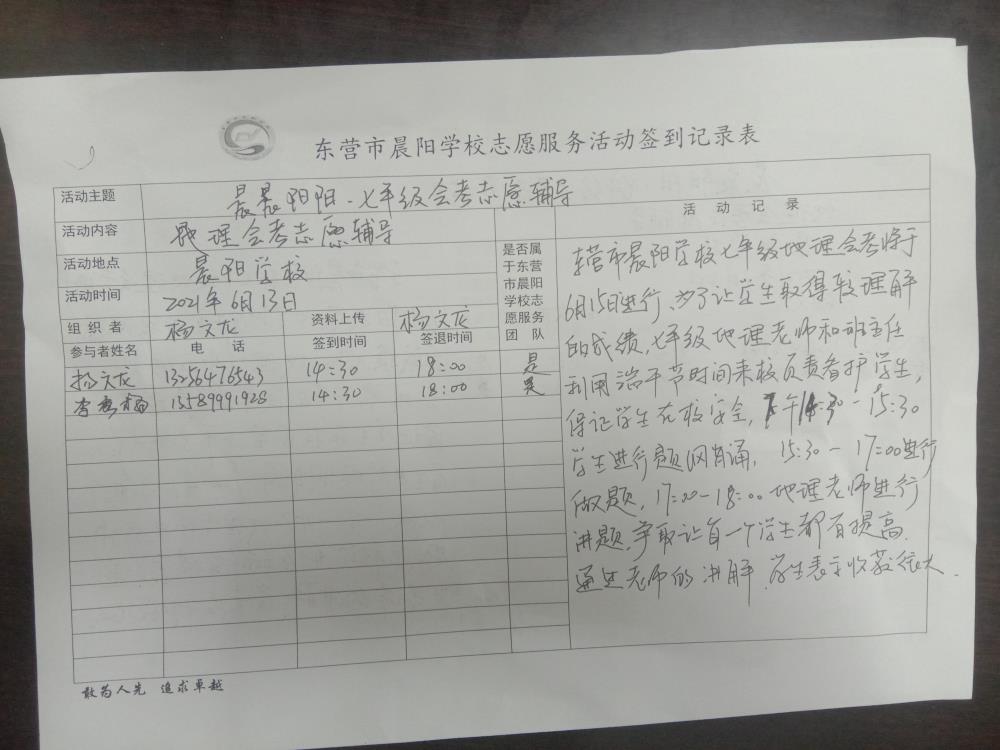 东营市晨阳学校志愿服务活动签到记录表
活动主题 晨晨阳阳·七年级会考志愿辅导
活动内容 地理会考志愿辅导
活动地点 晨阳学校
活动时间 2021年6月13日
组织者 杨文龙 资料上传 杨文龙
参与者姓名 电话 签到时间 签退时间
是否属
于东营
市晨阳
学校志
愿服务
团队
杨文龙 13256476543 14:30 18:00 是
李 梅 15589991928 14:30 18:00 是
活动记录
东营市晨阳学校七年级地理会考将于
6月15日进行,为了让学生取得较理解
的成绩,七年级地理老师和班主任
利用端午节时间来校负责看护学生,
保证学生在校安全,下午14:30-15:30
学生进行题纲背诵, 15:30-17:00进行
做题,17:00-18:00地理老师进行
讲题,争取让每一个学生都有提高.
通过老师的讲解,学生表示收获很大.
敢为人先 追求卓越